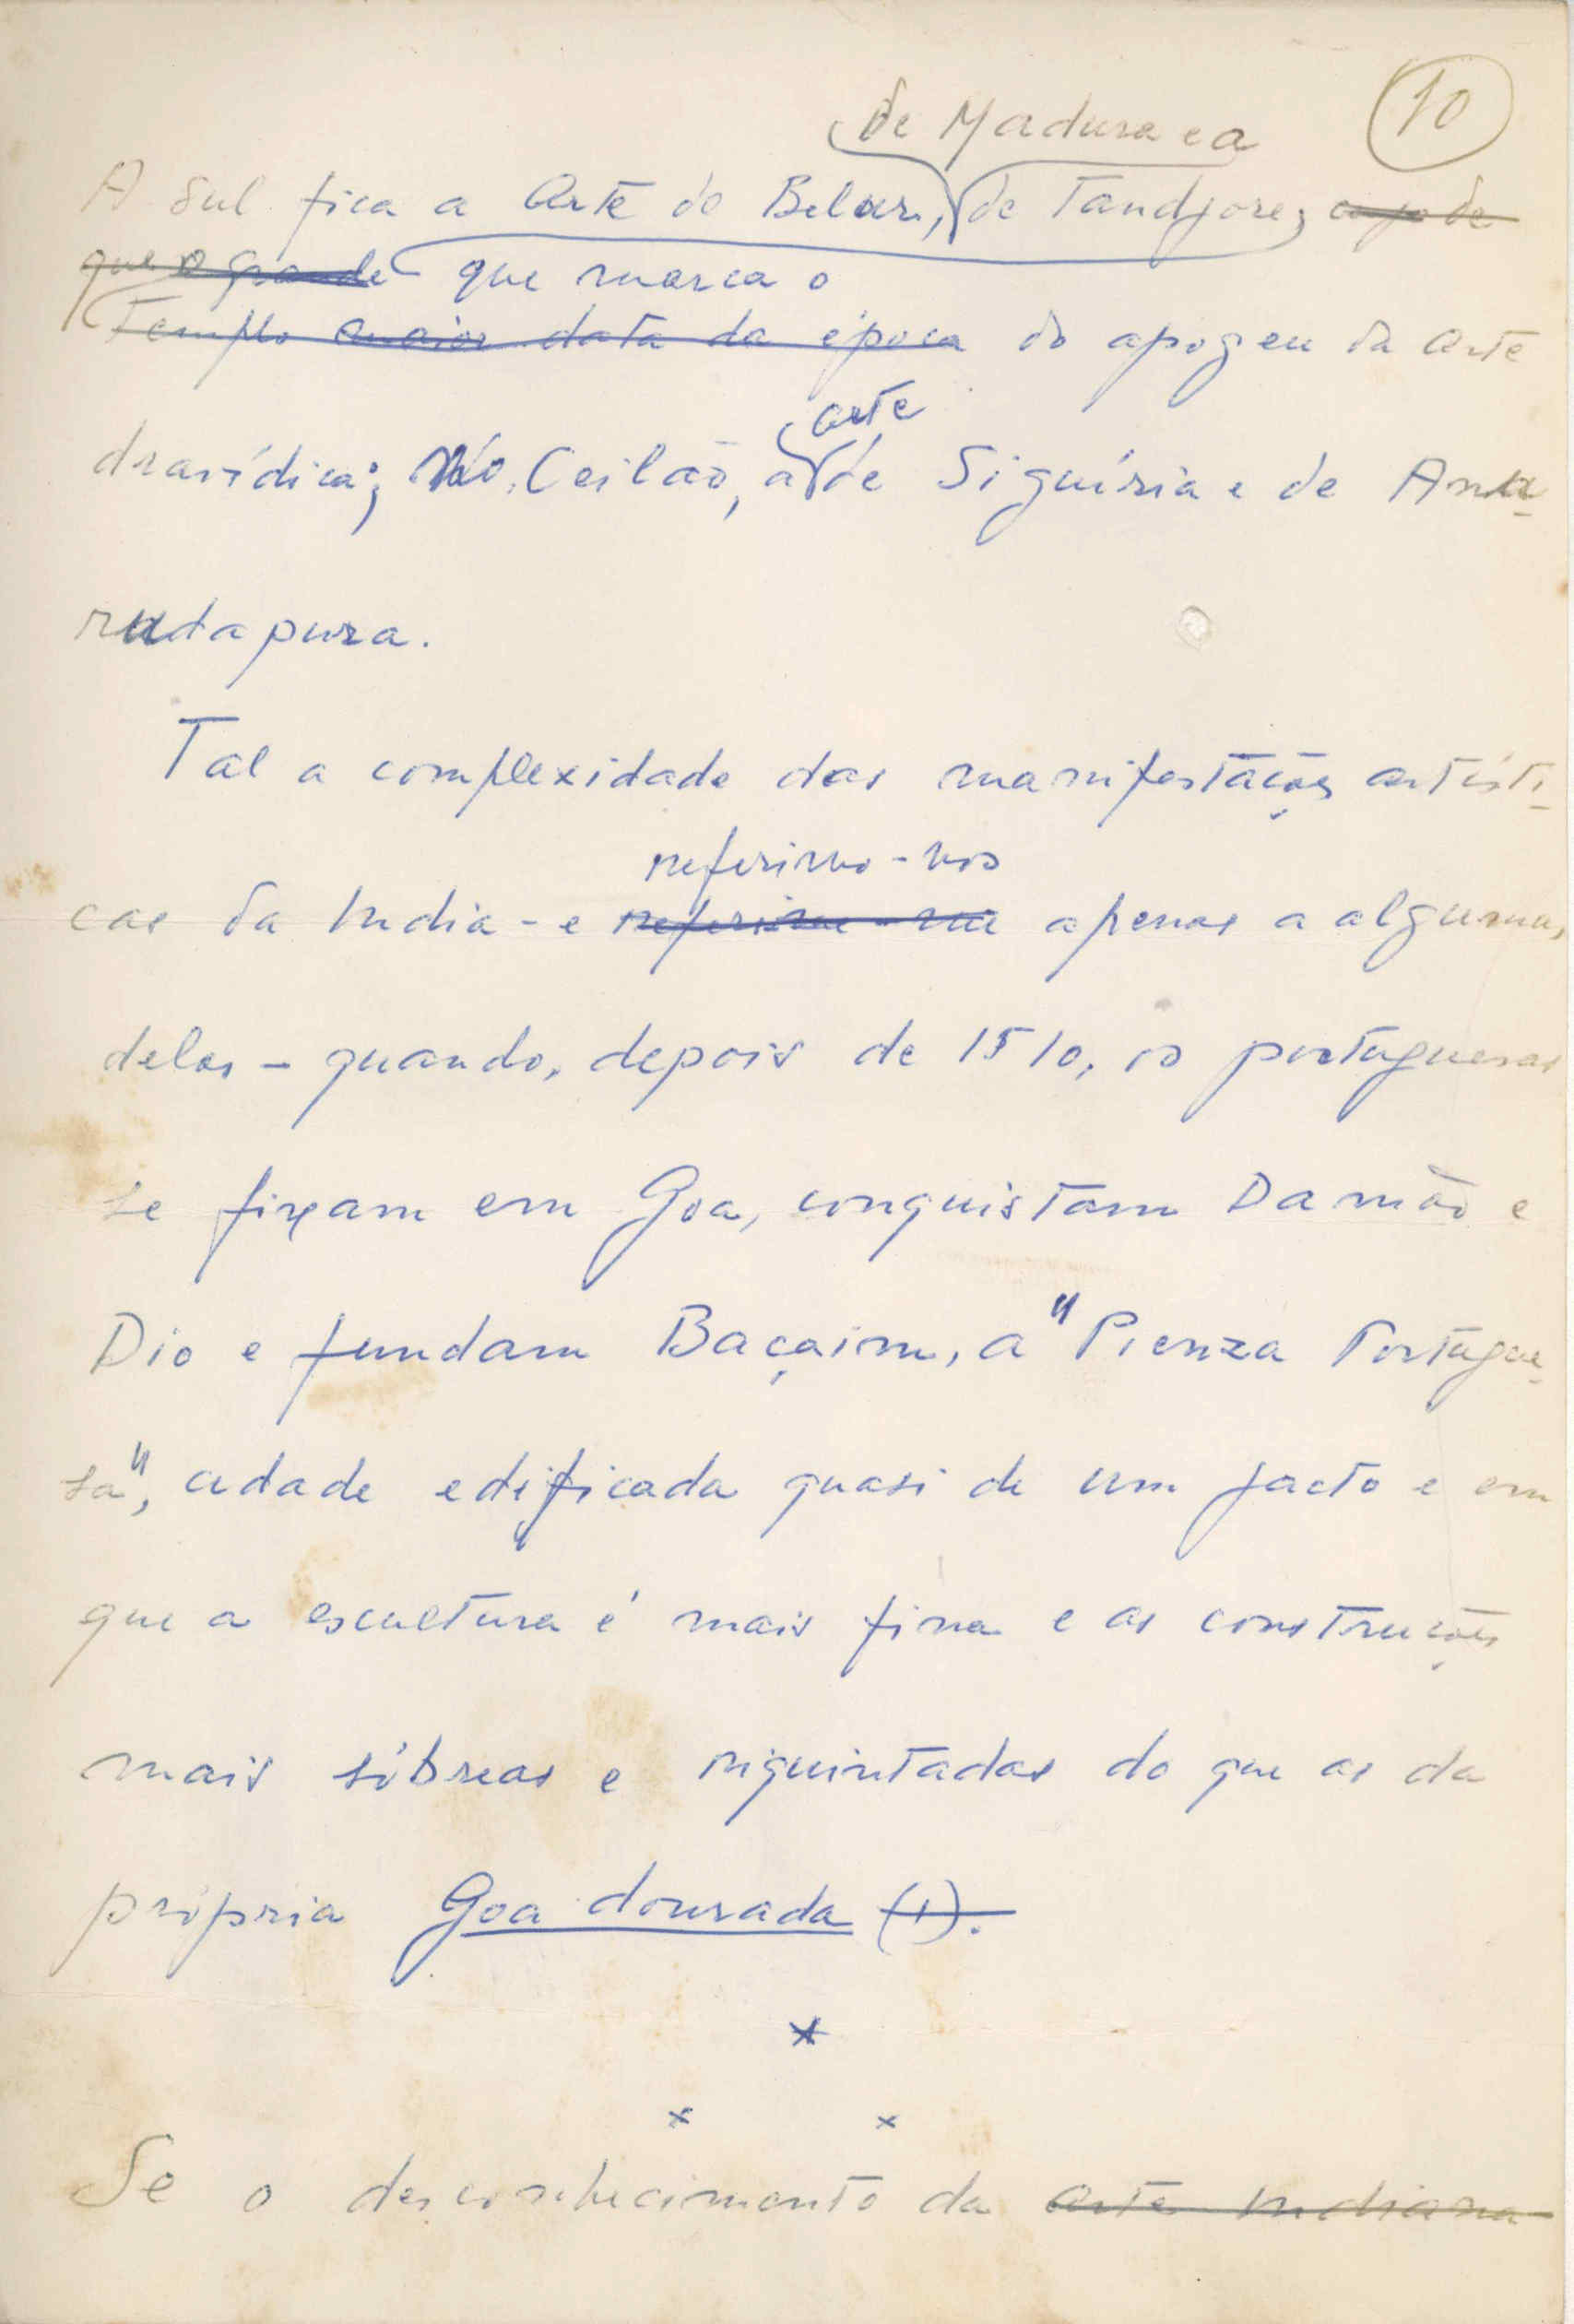 10
de Madura e a
A Sul fica a Arte de Belur, de Tandjore,
que o grande que marca o
Templo maior data da época do apogeu da arte
arte
dravídica; No Ceilão, a de Siguíria e de Anu-
radapura.
Tal a complexidade das manifestações artísti-
referimo-nos
cas da India - e referimo-nos apenas a algumas
delas - quando, depois de 1510, os portugueses
se fixam em Goa, conquistam Damão e
Dio e fundam Baçaim, a "Pienza Portugue-
sa", cidade edificada quasi de um jacto e em
que a escultura é mais fina e as construções
mais sóbreas e riquintadas do que as da
própria Goa dourada (1).
*
x x
Se o desconhecimento da arte indiana